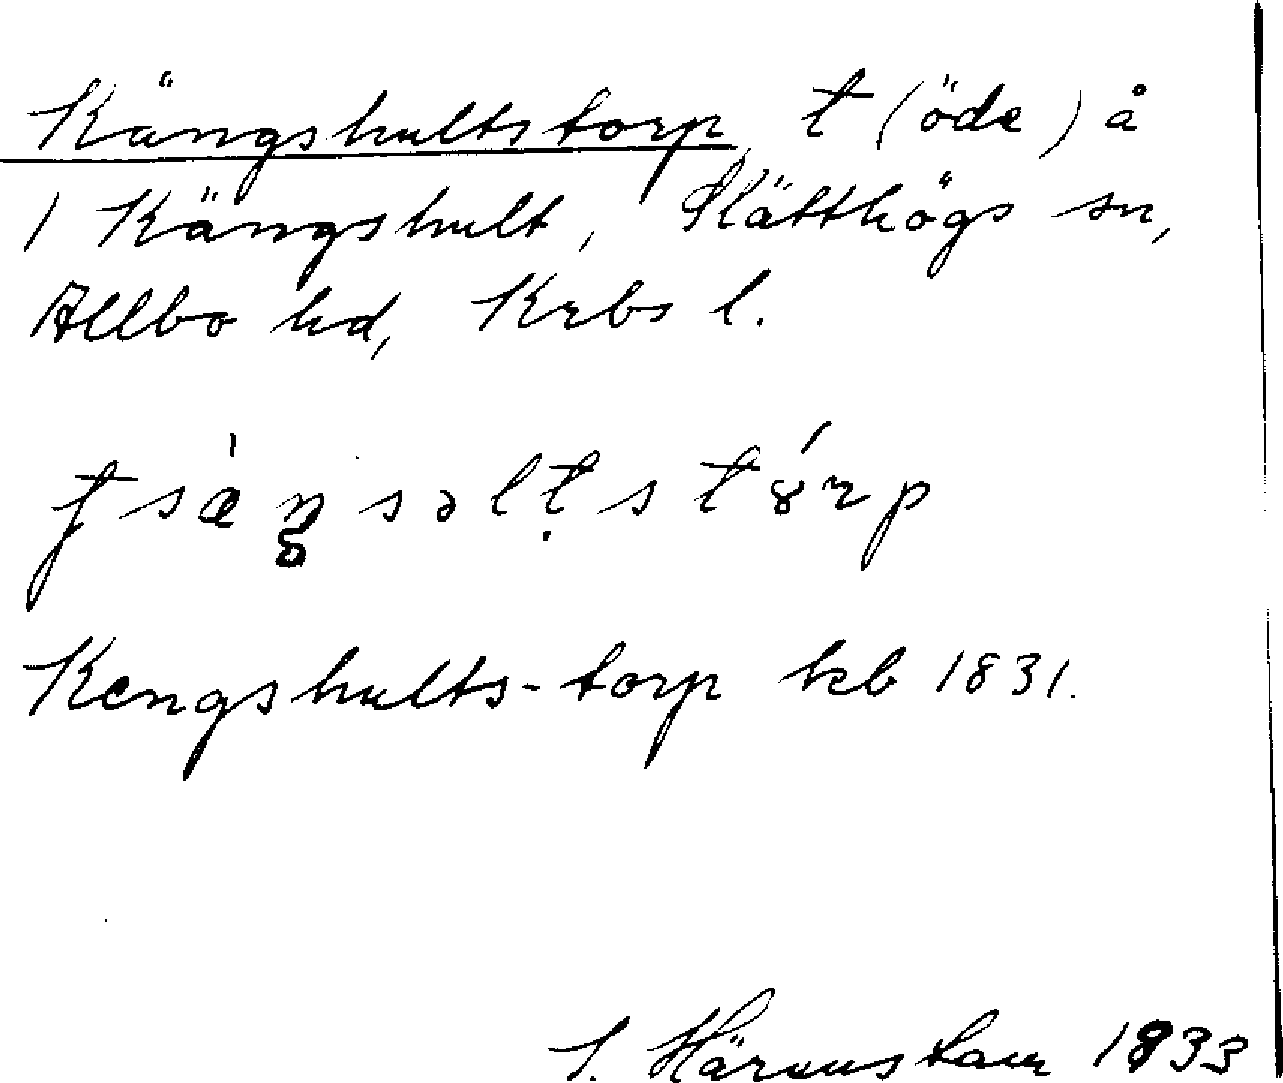 Kängshultstorp t (öde) å
1 Kängshult, Slätthögs sn,
Allbo hd, Krbs l.
Kengshults-torp kb 1831.
S. Härenstam 1933